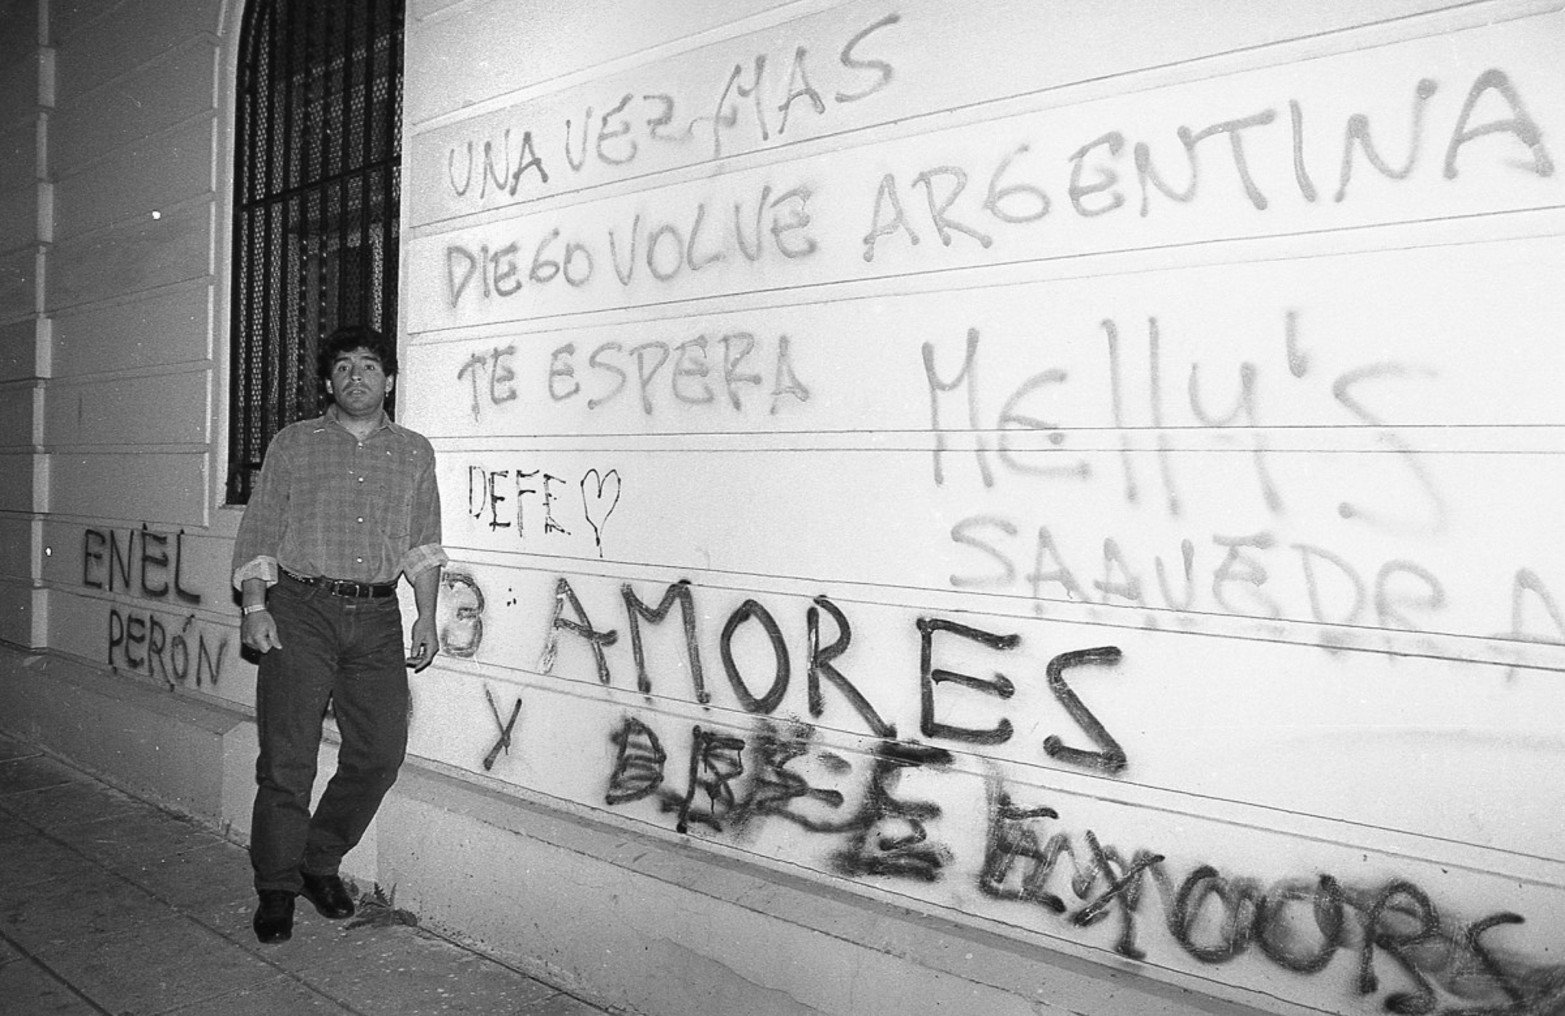 UNA VEZ MAS
DIEGO VOLVE ARGENTINA
TE ESPERA
Melly's
SAAVEDRA
DEFE
EN EL
PERÓN
3 AMORES
X